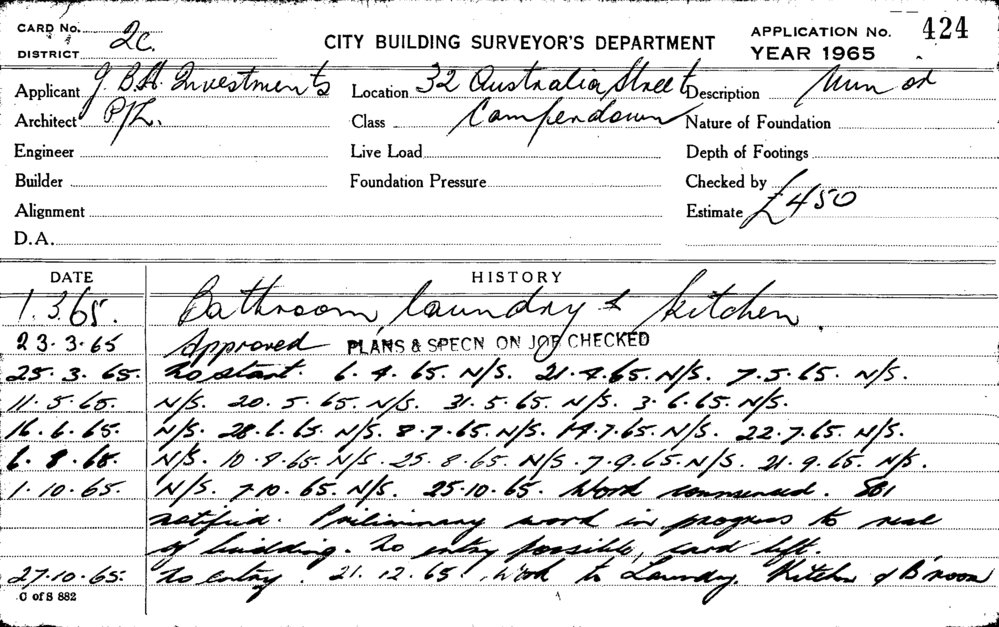 CARD No. 2c. CITY BUILDING SURVEYOR'S DEPARTMENT APPLICATION No. 424
DISTRICT YEAR 1965
Applicant J.B.H. Investments Location 32 Australia Street Description
Architect P/L. Class Camperdown Nature of Foundation
Engineer Live Load Depth of Footings
Builder Foundation Pressure Checked by
Alignment Estimate £450
D.A.
DATE HISTORY
1.3.65. Bathroom laundry & kitchen.
23.3.65 Approved PLANS & SPECN ON JOB CHECKED
25.3.65. No start. 6.4.65. N/S. 21.4.65. N/S. 7.5.65. N/S.
11.5.65. N/S. 20.5.65. N/S. 31.5.65. N/S. 3.6.65. N/S.
16.6.65. N/S. 28.6.65. N/S. 8.7.65. N/S. 14.7.65. N/S. 22.7.65. N/S.
6.8.65. N/S. 10.8.65. N/S. 25.8.65. N/S. 7.9.65. N/S. 21.9.65. N/S.
1.10.65. N/S. 7.10.65. N/S. 25.10.65. Work commenced.
notified. Preliminary work in progress to rear
of building. No entry possible, card left.
27.10.65. No entry. 21.12.65. Work to Laundry, Kitchen & B'room
C of S 882